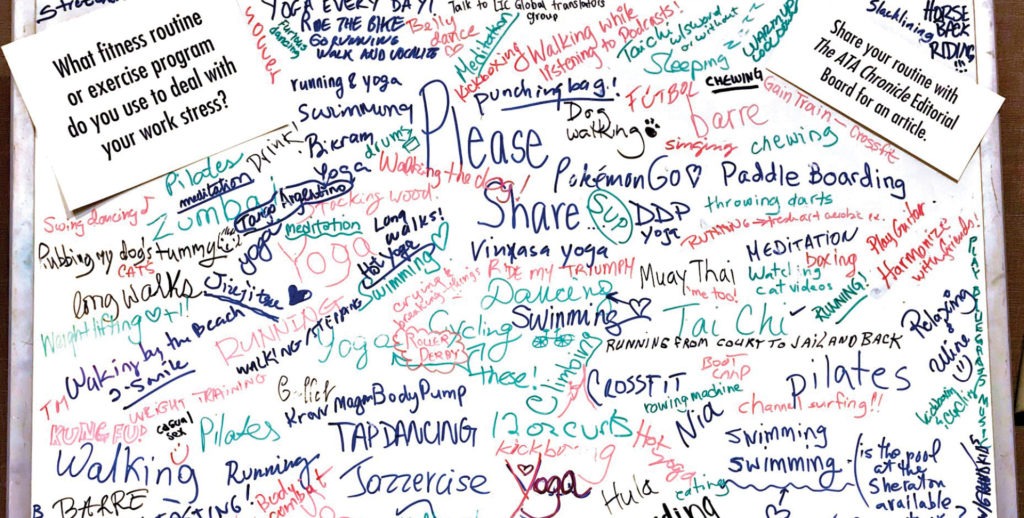 What fitness routine
or exercise program
do you use to deal with
your work stress?
Share your routine with
The ATA Chronicle Editorial
Board for an article.
YOGA EVERY DAY!
RIDE THE BIKE
GO RUNNING
WALK AND VOCALIZE
Furious
dancing
soccer
Belly
dance
Talk to LIC Global translators
group
Meditation
Kickboxing
Walking while
listening to Podcasts!
Tai Chi w/sword
or without
Sleeping
Slacklining
HORSE
BACK
RIDING!!!
running & yoga
Swimming
Bikram
Yoga
drums
punching bag!
Dog
walking
FÚTBOL
CHEWING
barre
singing
Gain Train - Crossfit
chewing
Please
Share
Drink!
Pilates
meditation
Zumba!
Tango Argentino
yoga
Stocking wood
meditation
Walking the dog!
PokémonGo ♡
Paddle Boarding
SUP
DDP
Yoga
throwing darts
Swing dancing ♪
Rubbing my dog's tummy
CATS
Yoga
Long
walks!
Hot Yoga
Swimming
Vinyasa yoga
RIDE MY TRYUMPH
MEDITATION
boxing
Play Guitar
Harmonize
with friends!
long walks
Jiujitsu
crying
breaking things
Dancing
Muay Thai
me too!
Watching
cat videos
RUNNING!
PLAY BLUEGRASS MUSIC
W/GRANDKIDS
Weight lifting ♡ +1!
RUNNING
WALKING / STEPPING
Yoga
Cycling
ROLLER
DERBY
these!
Swimming
Tai Chi ✓
RUNNING FROM COURT TO JAIL AND BACK
Relaxing
Waking by the Beach
2-5mile
TM
WEIGHT TRAINING
KUNG FU!
casual
sex
Krav Maga
BodyPump
climbing
CROSSFIT
BOOT
CAMP
rowing machine
pilates
channel surfing!!
Pilates
TAP DANCING
12 oz curls
kickboxing
Hot
Yoga
Nia
swimming
swimming
is the pool
at the
Sheraton
available
Walking
Running
BARRE
Body
combat
Jazzercise
Yoga
Hula
eating